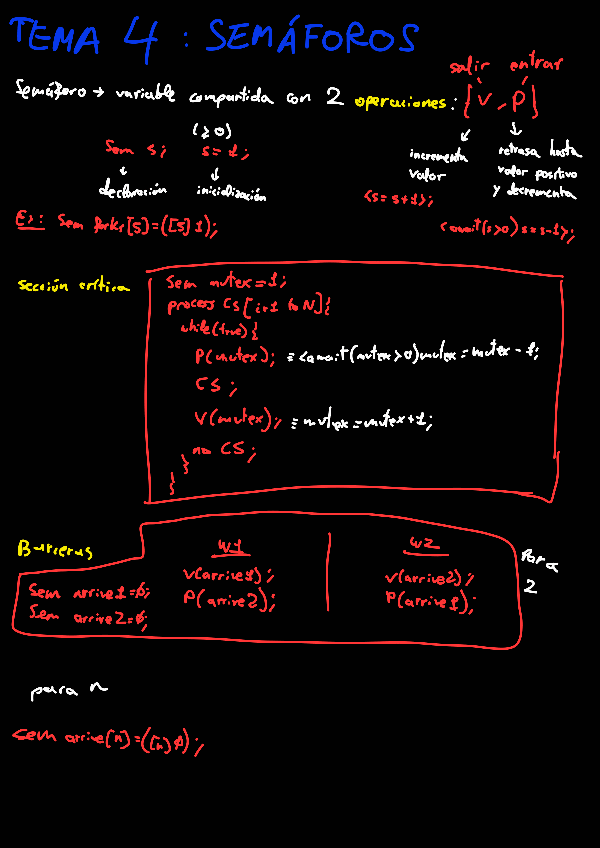 TEMA 4 : SEMÁFOROS
salir entrar
Semáforo → variable compartida con 2 operaciones: {V, P}
(≥0)
Sem s; s=1;
↓ ↓
declaración inicialización
incrementa valor
<s=s+1>;
retrasa hasta valor positivo y decrementa
<await(s>0) s=s-1>;
Ex: Sem forks[5]=([5]1);
Sección crítica
Sem mutex=1;
process CS[i=1 to N]{
while(true){
P(mutex); ≡<await(mutex>0)mutex=mutex-1;
CS;
V(mutex); ≡mutex=mutex+1;
no CS;
}
}
Barreras
W1 W2
V(arrive1); V(arrive2);
P(arrive2); P(arrive1);
Sem arrive1=0;
Sem arrive2=0;
Para 2
para n
sem arrive[n]=([n]0);